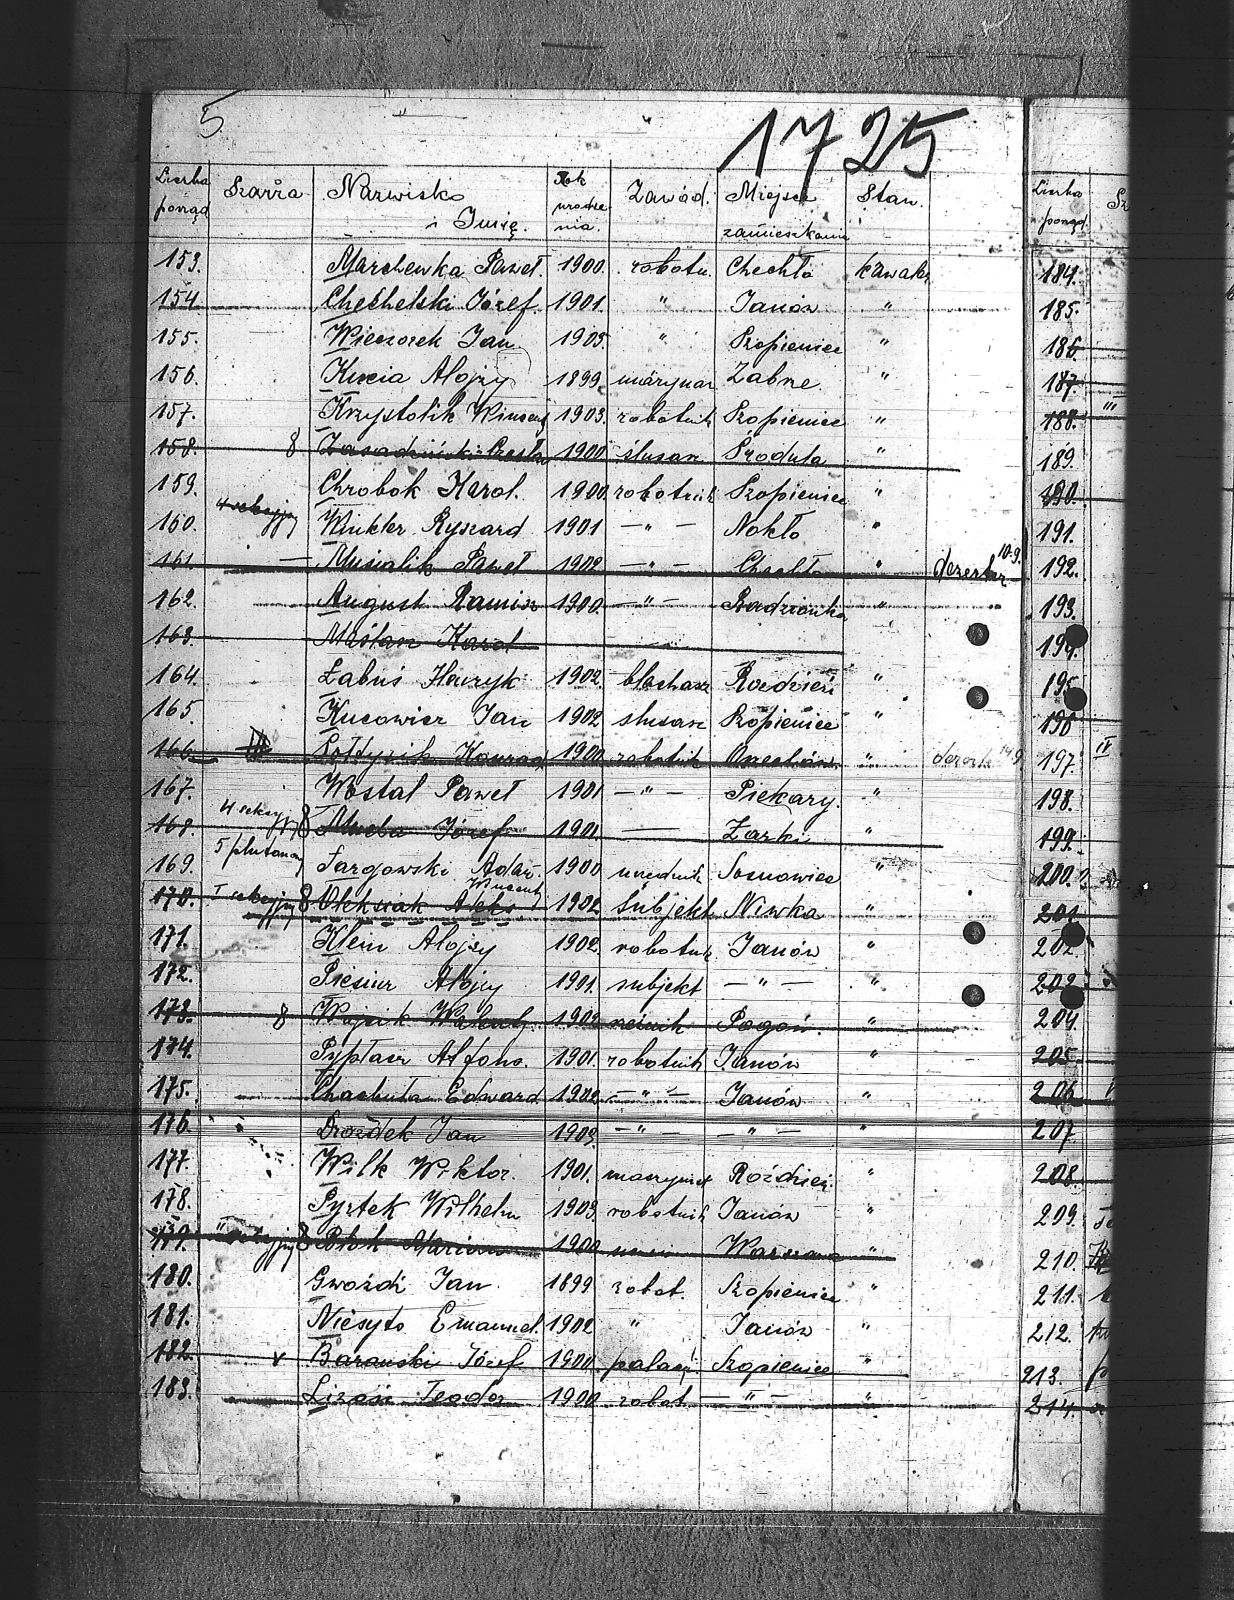 5
1725
Liczba porząd. Szarża Nazwisko i Imię. Rok urodzenia. Zawód. Miejsce zamieszkania Stan.
153. Marchewka Paweł 1900. robotn. Chechło kawaler
154. Chechelski Józef. 1901. " Janów "
155. Wieczorek Jan 1905. " Szopienice "
156. Kucia Alojzy 1899. marynar Zabrze "
157. Krzystolik Wincenty 1903. robotnik Szopienice "
158. 8 1900 ślusarz Środula "
159. Chrobok Karol. 1900 robotnik Szopienice "
160. 4 sekcyjny Winkler Ryszard 1901 — " — Nokło "
161. Musialik Paweł 1902 — " — Chechło " dezerter 10.9.
162. August Ramisz 1900 — " — Radzionka "
163. Maślarz Karol
164. Łabuś Henryk 1902 blacharz Rozdzień "
165. Kucowicz Jan 1902 ślusarz Szopienice "
166. Sołtysik Konrad 1900 robotnik "
167. Wostal Paweł 1901 — " — Piekary. "
168. 4 sekcyjny 8 Józef 1901 — Żarki "
169. 5 plutonowy Targowski Adam. 1900 urzędnik Sosnowiec "
170. I sekcyjny 8 Wincenty 1902 subjekt Niwka "
171. Klein Alojzy 1902 robotnik Janów "
172. Alojzy 1901. subjekt — " — "
173. 8 Wójcik Walenty. 1902 rolnik Pogoń. "
174. Pyplacz Alfons. 1901. robotnik Janów "
175. Chachuła Edward 1902 — " — Janów "
176. Drozdek Jan 1903. — " — — " — "
177. Wilk Wiktor. 1901. maszynist Roździeń. "
178. Pyrtek Wilhelm 1903 robotnik Janów "
179. " sekcyjny 8 Marian 1900 uczeń Warszawa "
180. Gwoźdź Jan 1899 robot. Szopienice "
181. Niesyto Emanuel. 1902 " Janów "
182. v Barański Józef 1900 palacz Szopienice "
183. Teodor 1900 robot. — " — "
Liczba porząd. Sz
184.
185.
186.
187.
188. "'
189.
190.
191.
192.
193.
194.
195
196
197. IV
198.
199.
200.
201
202.
203.
204.
205.
206.
207.
208.
209.
210.
211.
212.
213.
214.